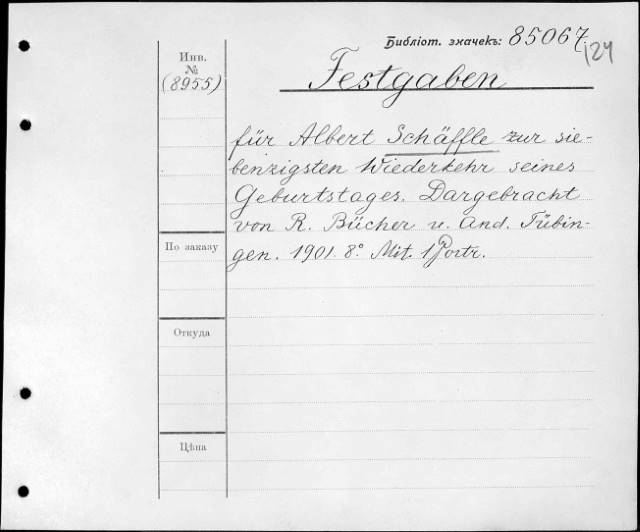 Библіот. значекъ: 85067.
124
Инв.
№
(8955)
Festgaben
für Albert Schäffle zur sie-
benzigsten Wiederkehr seines
Geburtstages. Dargebracht
von R. Bücher u. And. Tübin-
gen. 1901. 8º. Mit. 1 Portr.
По заказу
Откуда
Цѣна